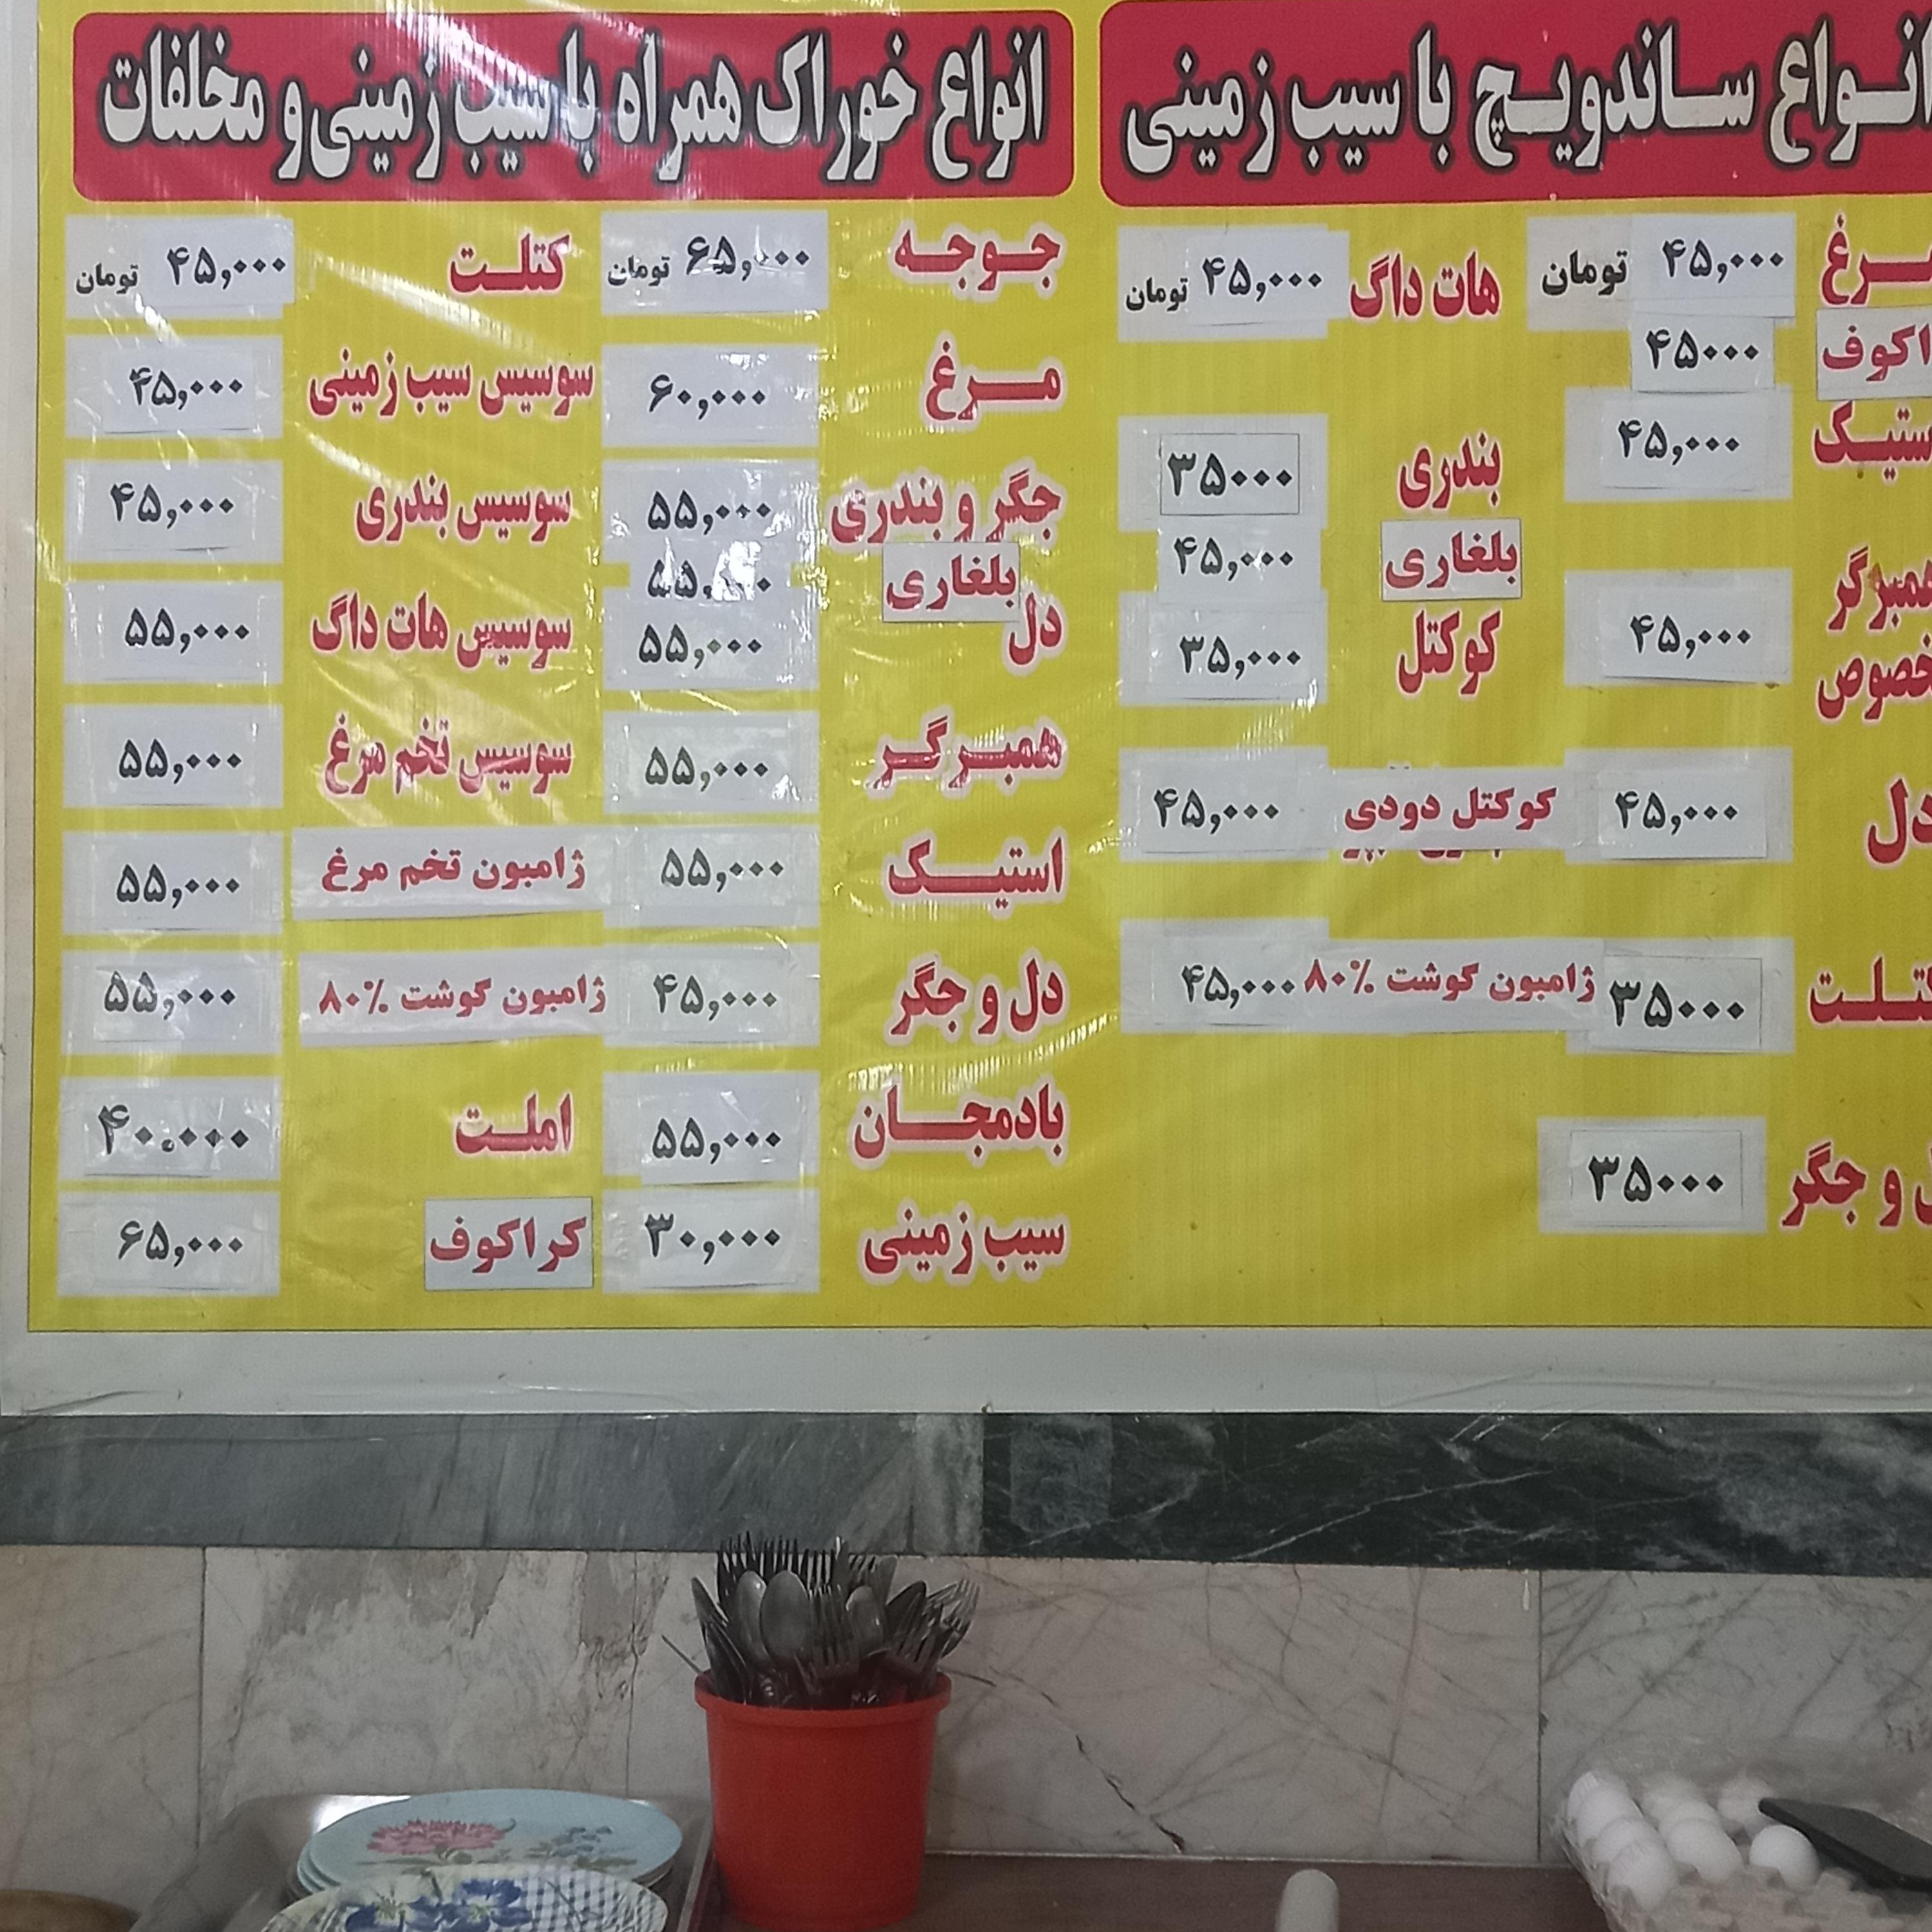 انواع ساندویچ با سیب زمینی
۴۵,۰۰۰ تومان
۴۵۰۰۰
۴۵,۰۰۰
۴۵,۰۰۰
دل ۴۵,۰۰۰
۳۵۰۰۰
و جگر ۳۵۰۰۰
هات داگ ۴۵,۰۰۰ تومان
بندری ۳۵۰۰۰
بلغاری ۴۵,۰۰۰
کوکتل ۳۵,۰۰۰
کوکتل دودی ۴۵,۰۰۰
ژامبون گوشت ۸۰% ۴۵,۰۰۰
انواع خوراک همراه با سیب زمینی و مخلفات
جوجه ۶۵,۰۰۰ تومان
مرغ ۶۰,۰۰۰
جگر و بندری ۵۵,۰۰۰
بلغاری ۵۵,۰۰۰
دل ۵۵,۰۰۰
همبرگر ۵۵,۰۰۰
استیک ۵۵,۰۰۰
دل و جگر ۴۵,۰۰۰
بادمجان ۵۵,۰۰۰
سیب زمینی ۳۰,۰۰۰
کتلت ۴۵,۰۰۰ تومان
سوسیس سیب زمینی ۴۵,۰۰۰
سوسیس بندری ۴۵,۰۰۰
سوسیس هات داگ ۵۵,۰۰۰
سوسیس تخم مرغ ۵۵,۰۰۰
ژامبون تخم مرغ ۵۵,۰۰۰
ژامبون گوشت ۸۰% ۵۵,۰۰۰
املت ۴۰.۰۰۰
کراکوف ۶۵,۰۰۰